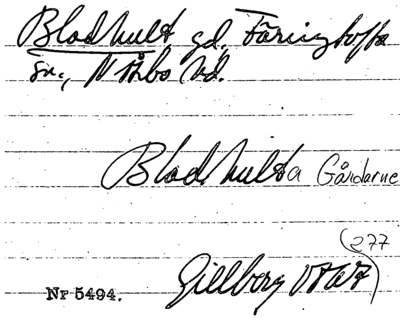 Bladhult gd. Färingtofta
sn., N Åsbo hd.
Bladhulta Gårdarne
277
Gillberg
Nr 5494.